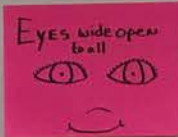 Eyes wide open
to all